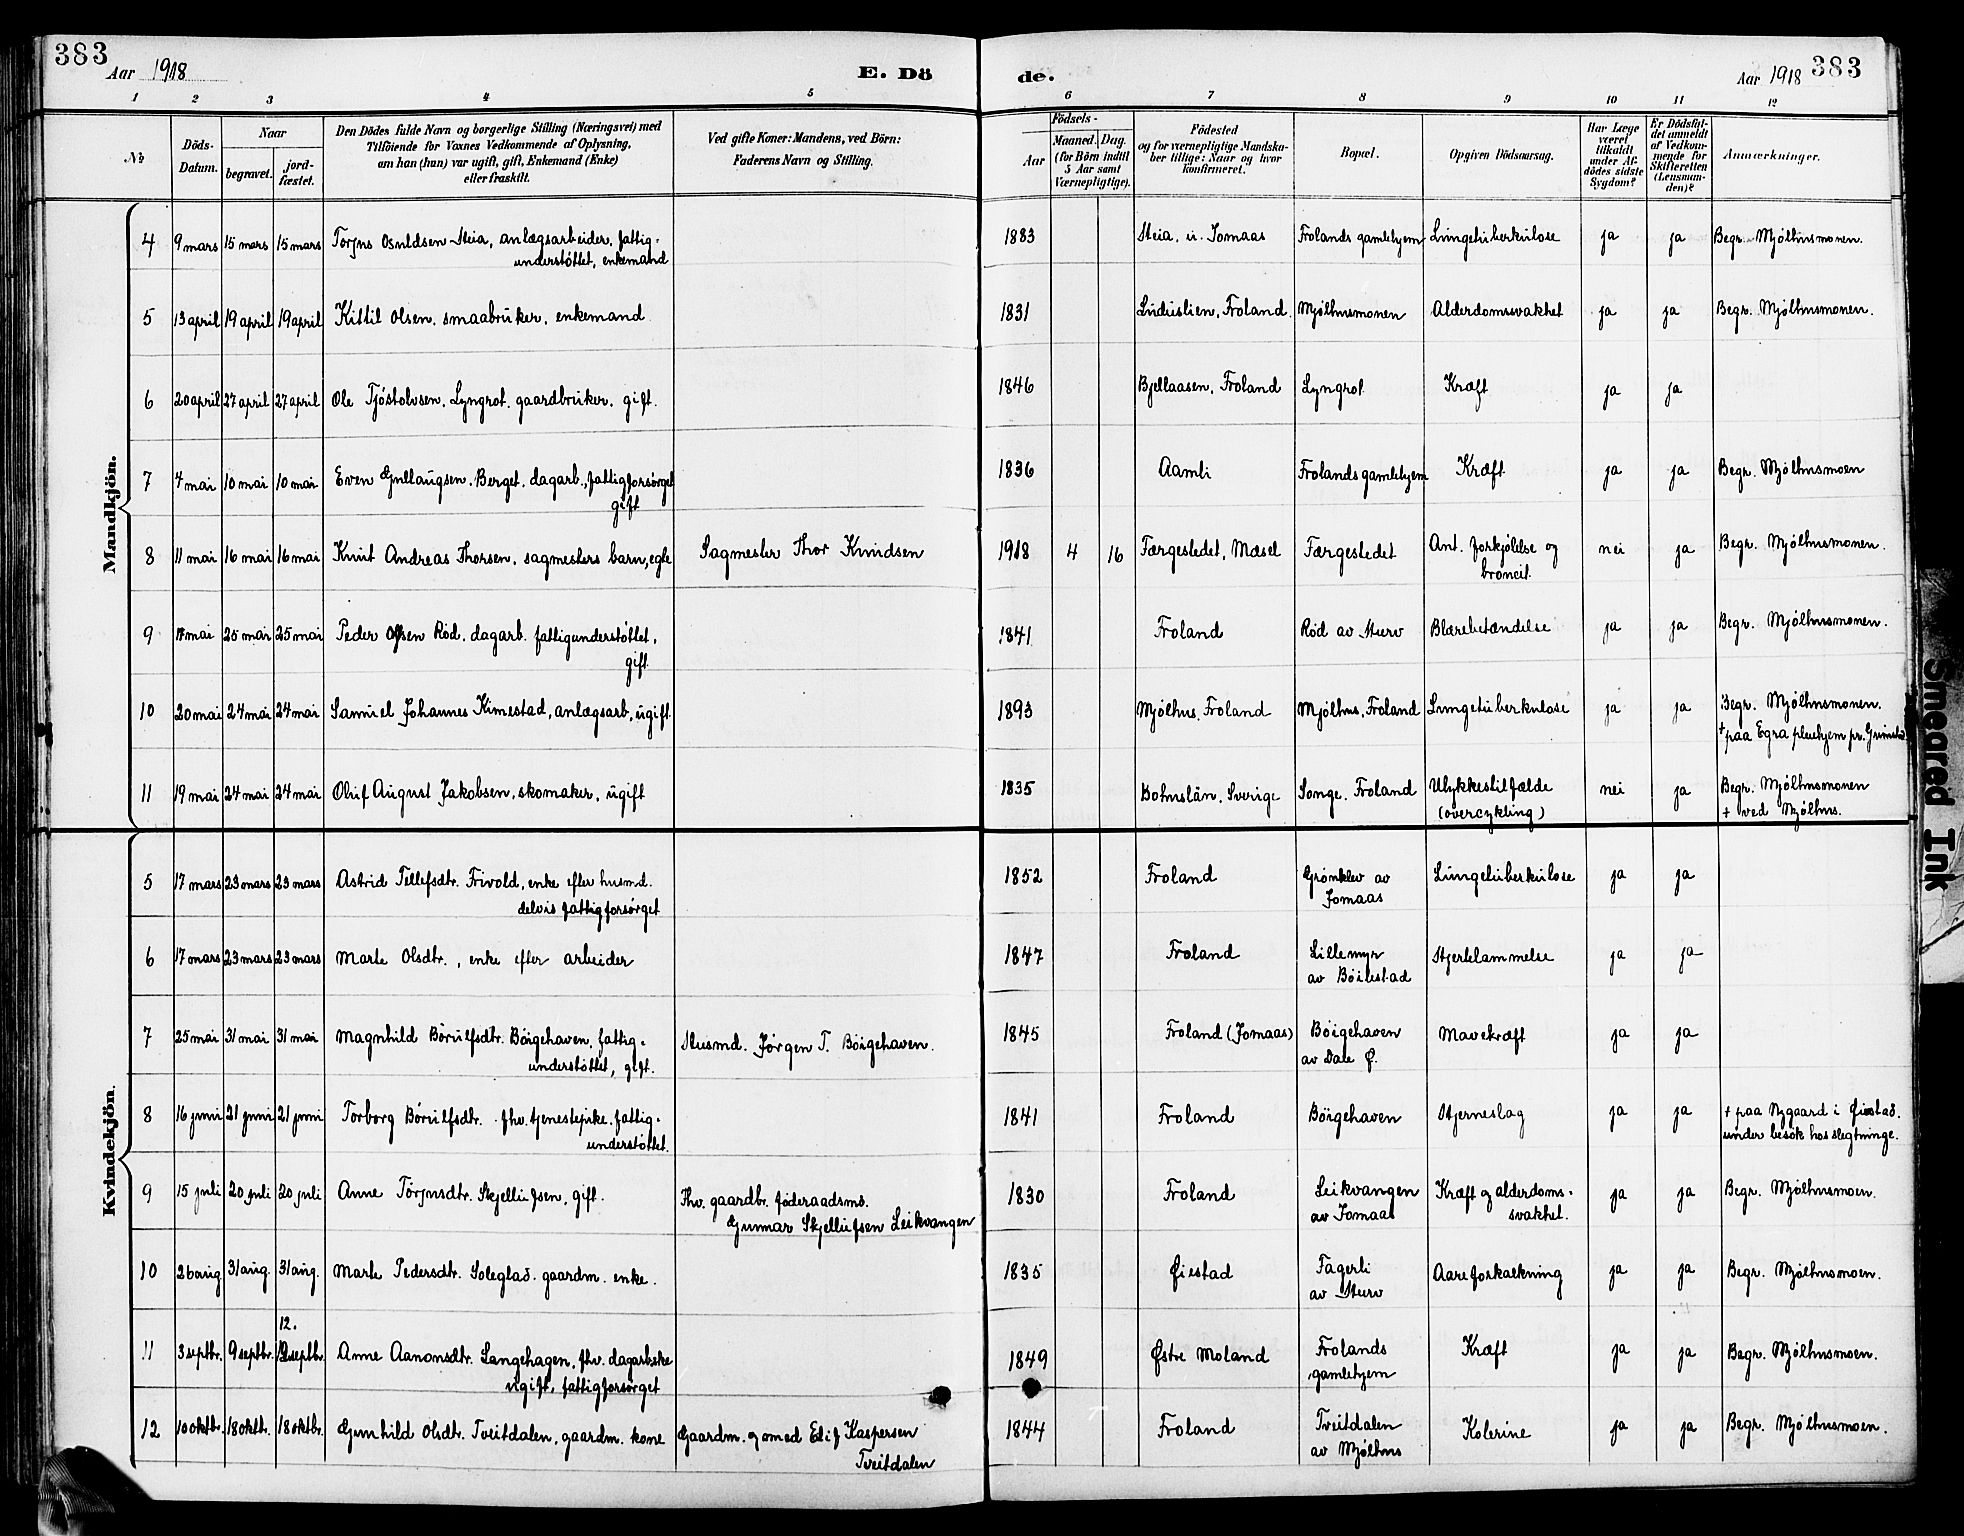 383
Aar 1918
E. Dö
de.
Aar 1918
383
1 2 3 4 5 6 7 8 9 10 11 12
№
Döds-
Datum.
Naar
begravet.
jord-
fæstet.
Den Dödes fulde Navn og borgerlige Stilling (Næringsvei) med
Tilföiende for Voxnes Vedkommende af Oplysning,
om han (hun) var ugift, gift, Enkemand (Enke)
eller fraskilt.
Ved gifte Koner: Mandens, ved Börn:
Faderens Navn og Stilling.
Födsels-
Aar
Maaned. Dag.
(for Börn indtil
5 Aar samt
Værnepligtige).
Födested
og for værnepligtige Mandska-
ber tillige: Naar og hvor
konfirmeret.
Bopæl.
Opgiven Dödsaarsag.
Har Læge
været
tilkaldt
under Af-
dödes sidste
Sygdom?
Er Dödsfal-
det anmeldt
af Vedkom-
mende for
Skifteretten
(Lensman-
den)?
Anmærkninger.
Mandkjön.
4 9 mars 15 mars 15 mars Torjus Osuldsen Heia, anlægsarbeider, fattig- 1883 Heia, u. Jomaas Frolands gamlehjem Lungetuberkulose ja ja Begr. Mjølhusmonen.
understøttet, enkemand
5 13 april 19 april 19 april Kittil Olsen, smaabruker, enkemand 1831 Luduslien, Froland. Mjølhusmonen Alderdomssvakhet ja ja Begr. Mjølhusmonen.
6 20 april 27 april 27 april Ole Tjøstolvsen, Lyngrot, gaardbruker, gift. 1846 Bjellaasen, Froland Lyngrot Kræft ja ja
7 4 mai 10 mai 10 mai Even Gullaugsen Berget, dagarb., fattigforsørget 1836 Aamli Frolands gamlehjem Kræft ja ja Begr. Mjølhusmoen
gift
8 11 mai 16 mai 16 mai Knut Andreas Thorsen, sagmesters barn, egte Sagmester Thor Knudsen 1918 4 16 Færgestedet, Mæsel Færgestedet Ant. forkjølelse og nei ja Begr. Mjølhusmonen.
broncit.
9 mai 25 mai 25 mai Peder Olsen Rød, dagarb. fattigunderstøttet, 1841 Froland Rød av Hurv Blærebetændelse ja ja Begr. Mjølhusmonen.
gift
10 20 mai 24 mai 24 mai Samuel Johannes Kimestad, anlægsarb, ugift. 1893 Mjølhus, Froland Mjølhus, Froland Lungetuberkulose ja ja Begr. Mjølhusmonen.
+ paa Egra pleiehjem pr. Grimstad
11 19 mai 24 mai 24 mai Oluf August Jakobsen, skomaker, ugift 1835 Bohuslän, Sverige Songe, Froland Ulykkestilfælde nei ja Begr. Mjølhusmonen
(overcykling) + ved Mjølhus.
Kvindekjön.
5 17 mars 23 mars 23 mars Astrid Tellefsdtr. Frivold, enke efter husmd. 1852 Froland Grønklev av Lungetuberkulose ja ja
delvis fattigforsørget Jomaas
6 17 mars 23 mars 23 mars Marte Olsdtr., enke efter arbeider 1847 Froland Lillemyr Hjertelammelse ja ja
av Bøilestad
7 25 mai 31 mai 31 mai Magnhild Børulfsdtr. Bøigehaven, fattig- Husmd. Jørgen T. Bøigehaven. 1845 Froland (Jomaas) Bøigehaven Mavekræft ja ja
understøttet, gift. av Dale Ø.
8 16 juni 21 juni 21 juni Torborg Børulfsdtr. fhv. tjenestepike. fattig- 1841 Froland Bøigehaven Hjerneslag ja ja + paa Nygaard i Øiestad.
understøttet. under besøk hos slegtninge.
9 15 juli 20 juli 20 juli Anne Torjusdtr. Skjellufsen, gift. Fhv. gaardbr. føderaadsmd. 1830 Froland Leikvangen Kræft og alderdoms- ja ja Begr. Mjølhusmoen.
Gunnar Skjellufsen Leikvangen av Jomaas svakhet.
10 26 aug 31 aug. 31 aug. Marte Pedersdtr. Soleglad. gaardm. enke. 1835 Øiestad Fagerli Aareforkalkning ja ja Begr. Mjølhusmoen.
av Hurv
12.
11 3 septbr. 9 septbr. 12 septbr. Anne Aanonsdtr. Langehagen, fhv. dagarbske 1849 Østre Moland Frolands Kræft ja ja Begr. Mjølhusmoen.
ugift, fattigforsørget gamlehjem
12 10 oktbr. 18 oktbr. 18 oktbr. Gunhild Olsdtr. Tveitdalen, gaardm. kone Gaardm. og smed Elif Kaspersen 1844 Froland Tveitdalen Kolerine ja ja Begr. Mjølhusmoen.
Tveitdalen av Mjølhus
Smeared Ink